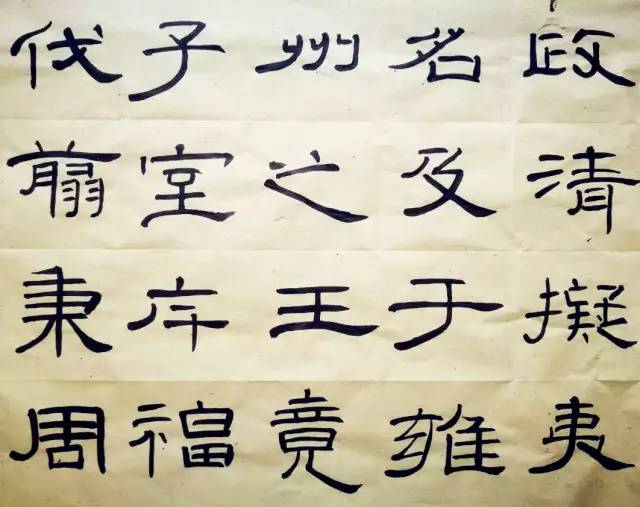 政清擬夷
名及于雍
州之王竟
子室斥福
伐翦秉周